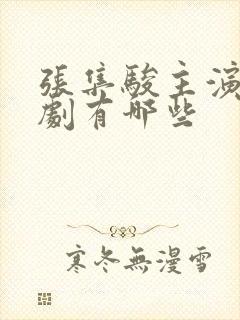 張集駿主演
劇有哪些
寒冬無漫雪